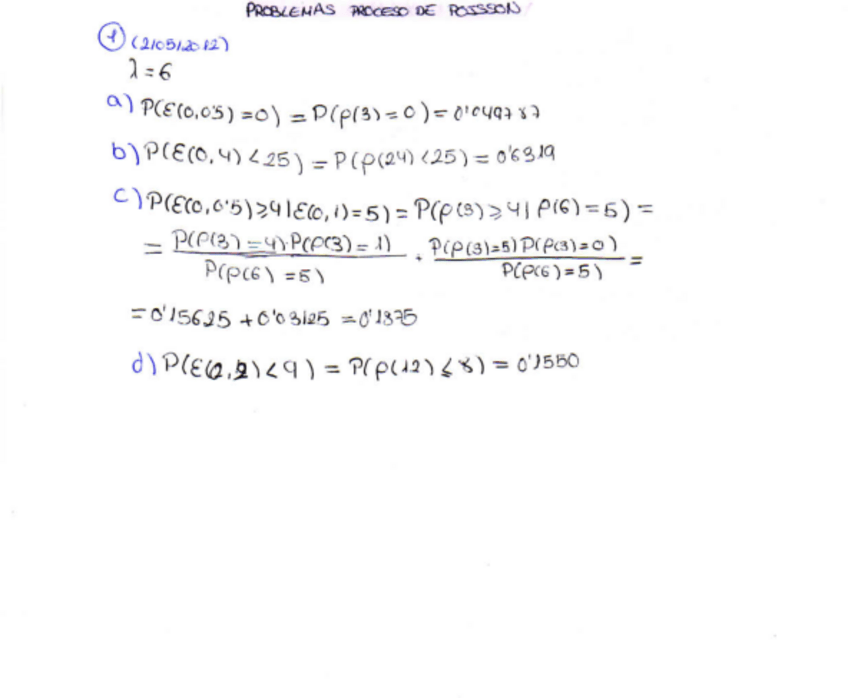 PROBLEMAS PROCESO DE POISSON
① (2/05/2012)
λ=6
a) P(ε(0,0'5)=0) = P(ρ(3)=0) = 0'049787
b) P(ε(0,4)<25) = P(ρ(24)<25) = 0'6319
c) P(ε(0,0'5)≥4|ε(0,1)=5) = P(ρ(3)≥4|ρ(6)=5) =
= P(ρ(3)=4)·P(ρ(3)=1) / P(ρ(6)=5) + P(ρ(3)=5)P(ρ(3)=0) / P(ρ(6)=5) =
= 0'15625 + 0'03125 = 0'1875
d) P(ε(2,2)<9) = P(ρ(12)≤8) = 0'1550